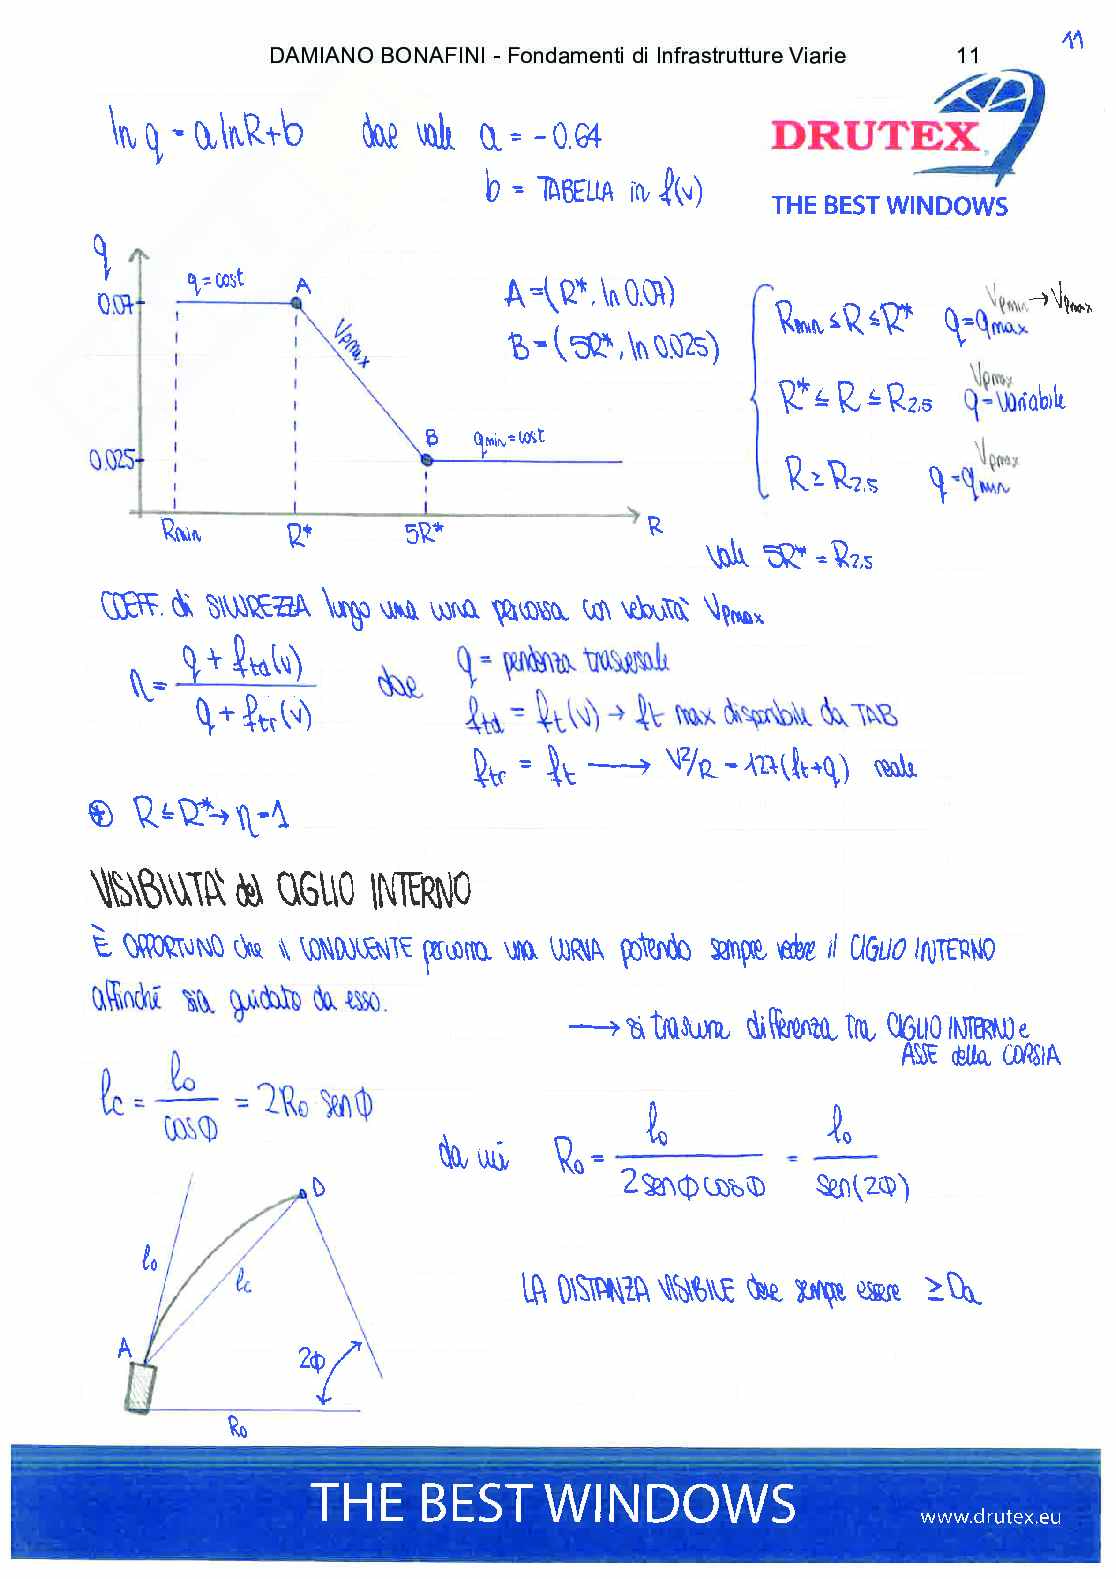 11
DAMIANO BONAFINI - Fondamenti di Infrastrutture Viarie 11
ln q = a ln R + b dove vale a = -0.64
b = TABELLA in f(v)
DRUTEX
THE BEST WINDOWS
q
q = cost A
0.07
Vpmax
B qmin = cost
0.025
Rmin R* 5R* R
A = (R*, ln 0.07)
B = (5R*, ln 0.025)
Rmin ≤ R ≤ R* q = qmax Vpmin → Vpmax
R* ≤ R ≤ R2,5 q = variabile Vpmax
R ≥ R2,5 q = qmin Vpmax
vale 5R* = R2,5
COEFF. di SICUREZZA lungo una curva percorsa con velocità Vpmax
η = (q + ftd(v)) / (q + ftr(v)) dove q = pendenza trasversale
ftd = ft(v) → ft max disponibile da TAB
ftr = ft → V²/R = 127(ft+q) reale
⊕ R ≤ R* → η = 1
VISIBILITA' del CIGLIO INTERNO
È OPPORTUNO che il CONDUCENTE percorra una CURVA potendo sempre vedere il CIGLIO INTERNO
affinché sia guidato da esso.
→ si trascura differenza tra CIGLIO INTERNO e
ASSE della CORSIA
lc = l0 / cosΦ = 2R0 senΦ
da cui R0 = l0 / (2 senΦ cosΦ) = l0 / sen(2Φ)
D
l0
lc
A
2Φ
R0
LA DISTANZA VISIBILE deve sempre essere ≥ Da
THE BEST WINDOWS
www.drutex.eu